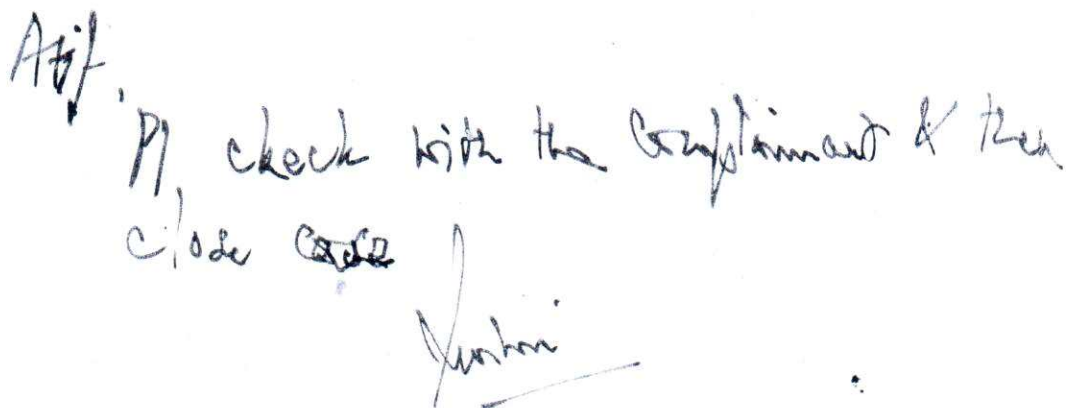 Atif,
Pl, check with the Complainant & then
close case